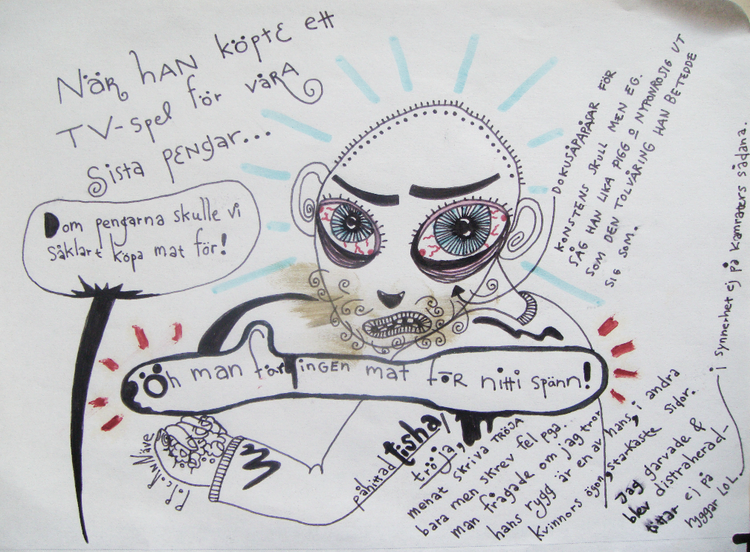 När han köpte ett
TV-spel för våra
sista pengar...
Dom pengarna skulle vi
såklart köpa mat för!
DOKUSÅPAPÅSAR FÖR
KONSTENS SKULL MEN EG.
SÅG HAN LIKA PIGG O NYPONROSIG UT
SOM DEN TOLVÅRING HAN BETEDDE
SIG SOM.
Öh man får ingen mat för nitti spänn!
påhittad tisha/
tröja,
menat skriva TRÖJA
bara men skrev fel pga.
man frågade om jag tror
hans rygg är en av hans, i andra
kvinnors ögon, starkaste sidor.
Jag garvade &
blev distraherad-
tittar ej på
ryggar LOL.
i synnerhet ej på kamraters sådana.